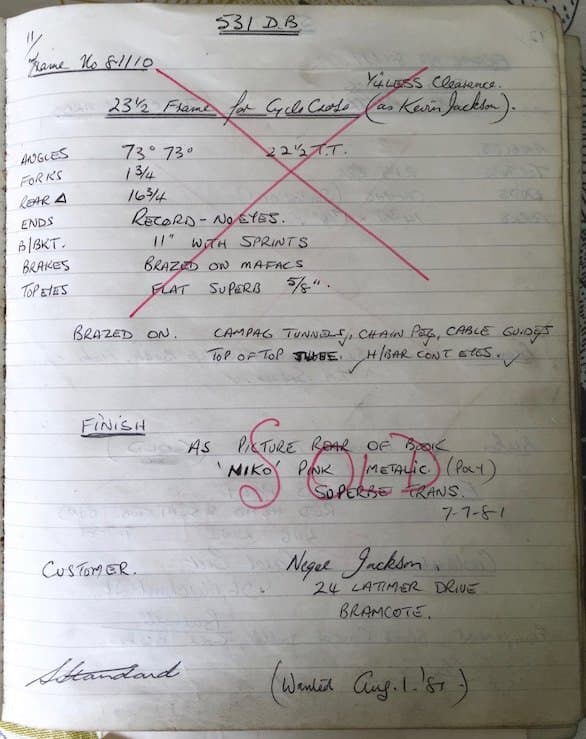 11/
531 D.B
Frame No 81110
1/4 LESS Clearance.
23 1/2 Frame for Cyclo Cross (as Kevin Jackson).
ANGLES 73° 73° 22 1/2 T.T.
FORKS 1 3/4
REAR Δ 16 3/4
ENDS RECORD - NO EYES.
B/BKT. 11" WITH SPRINTS
BRAKES BRAZED ON MAFACS
TOP EYES FLAT SUPERB 5/8".
BRAZED ON. CAMPAG TUNNELS, CHAIN PEG, CABLE GUIDES
TOP OF TOP TUBE. H/BAR CONT EYES. ✓
FINISH
AS PICTURE REAR OF BOOK
'NIKO' PINK METALIC (POLY)
SUPERBE TRANS.
7-7-81
SOLD
CUSTOMER. Nigel Jackson
24 LATIMER DRIVE
BRAMCOTE.
(Wanted Aug. 1. '81.)